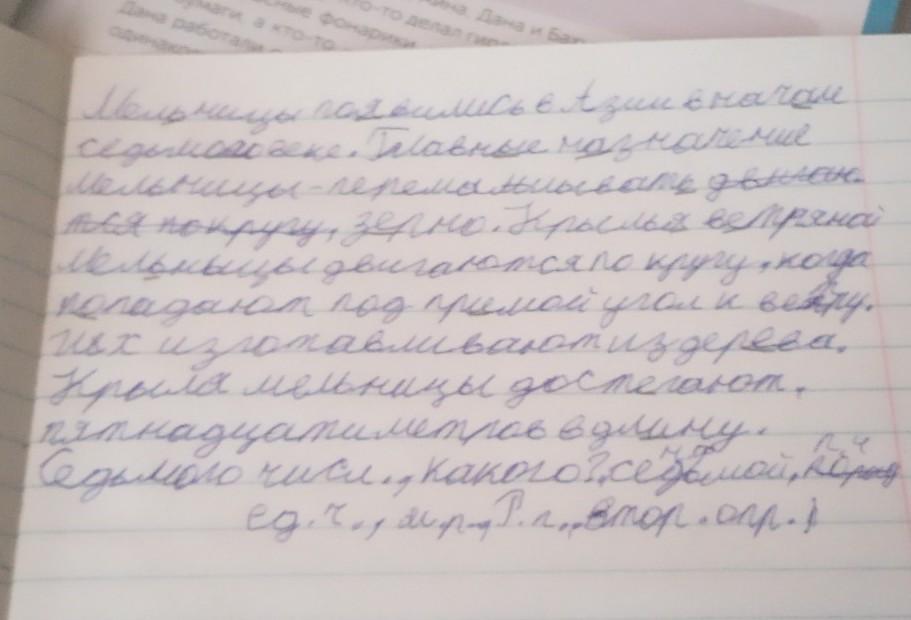 кто-то делал гир
Дана и Бах
бумаги, а кто-то
сные фонарики
Дана работали
одинаков
Мельницы появились в Азии в начал
седьмого веке. Главные назначение
мельницы - перема лывать двигаю
тся по кругу, зерно. Крылья ветряной
мельницы двигаются по кругу, когда
попадают под прямой угол к ветру.
Их изготавливают из дерева.
Крыля мельницы достегают,
пятнадцати метров в длину.
Седьмого числ., какого? седьмой,
ч п ч
ед.ч., м.р., Р.п., втор. опр.)